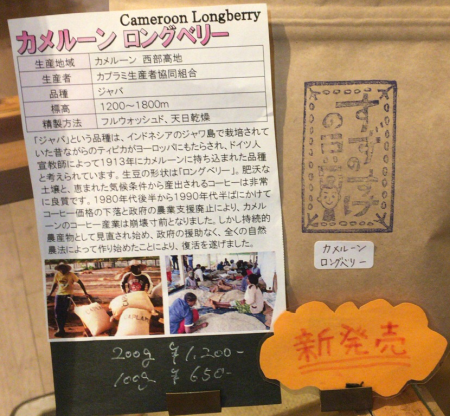 Cameroon Longberry
カメルーン ロングベリー
生産地域 カメルーン 西部高地
生産者 カプラミ生産者協同組合
品種 ジャバ
標高 1200～1800m
精製方法 フルウォッシュド、天日乾燥
「ジャバ」という品種は、インドネシアのジャワ島で栽培されて
いた昔ながらのティピカがヨーロッパにもたらされ、ドイツ人
宣教師によって1913年にカメルーンに持ち込まれた品種
と考えられています。生豆の形状は「ロングベリー」。肥沃な
土壌と、恵まれた気候条件から産出されるコーヒーは非常
に良質です。1980年代後半から1990年代半ばにかけて
コーヒー価格の下落と政府の農業支援廃止により、カメル
ーンのコーヒー産業は崩壊寸前となりました。しかし持続的
農産物として見直され始め、政府の援助なく、全くの自然
農法によって作り始めたことにより、復活を遂げました。
200g ¥1,200-
100g ¥650-
すずのすけ
の豆
カメルーン
ロングベリー
新発売